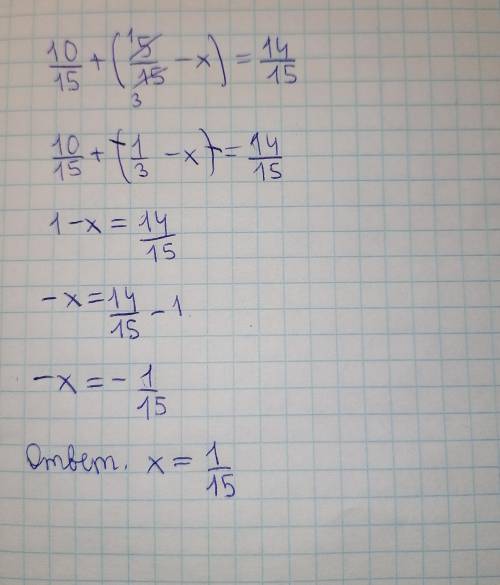 10/15 + (5/15 − x) = 14/15
10/15 + (1/3 − x) = 14/15
1 − x = 14/15
−x = 14/15 − 1
−x = − 1/15
Ответ. x = 1/15